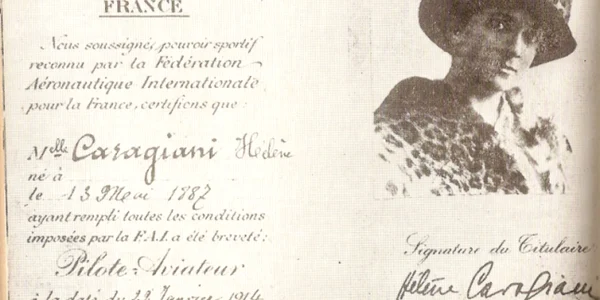 FRANCE
Nous soussigné, pouvoir sportif
reconnu par la Fédération
Aéronautique Internationale
pour la France, certifions que :
Melle Caragiani Hélène
né à
le 13 Mai 1887
ayant rempli toutes les conditions
imposées par la F.A.I. a été breveté :
Pilote-Aviateur
à la date du 22 Janvier 1914
Signature du Titulaire
Hélène Caragiani